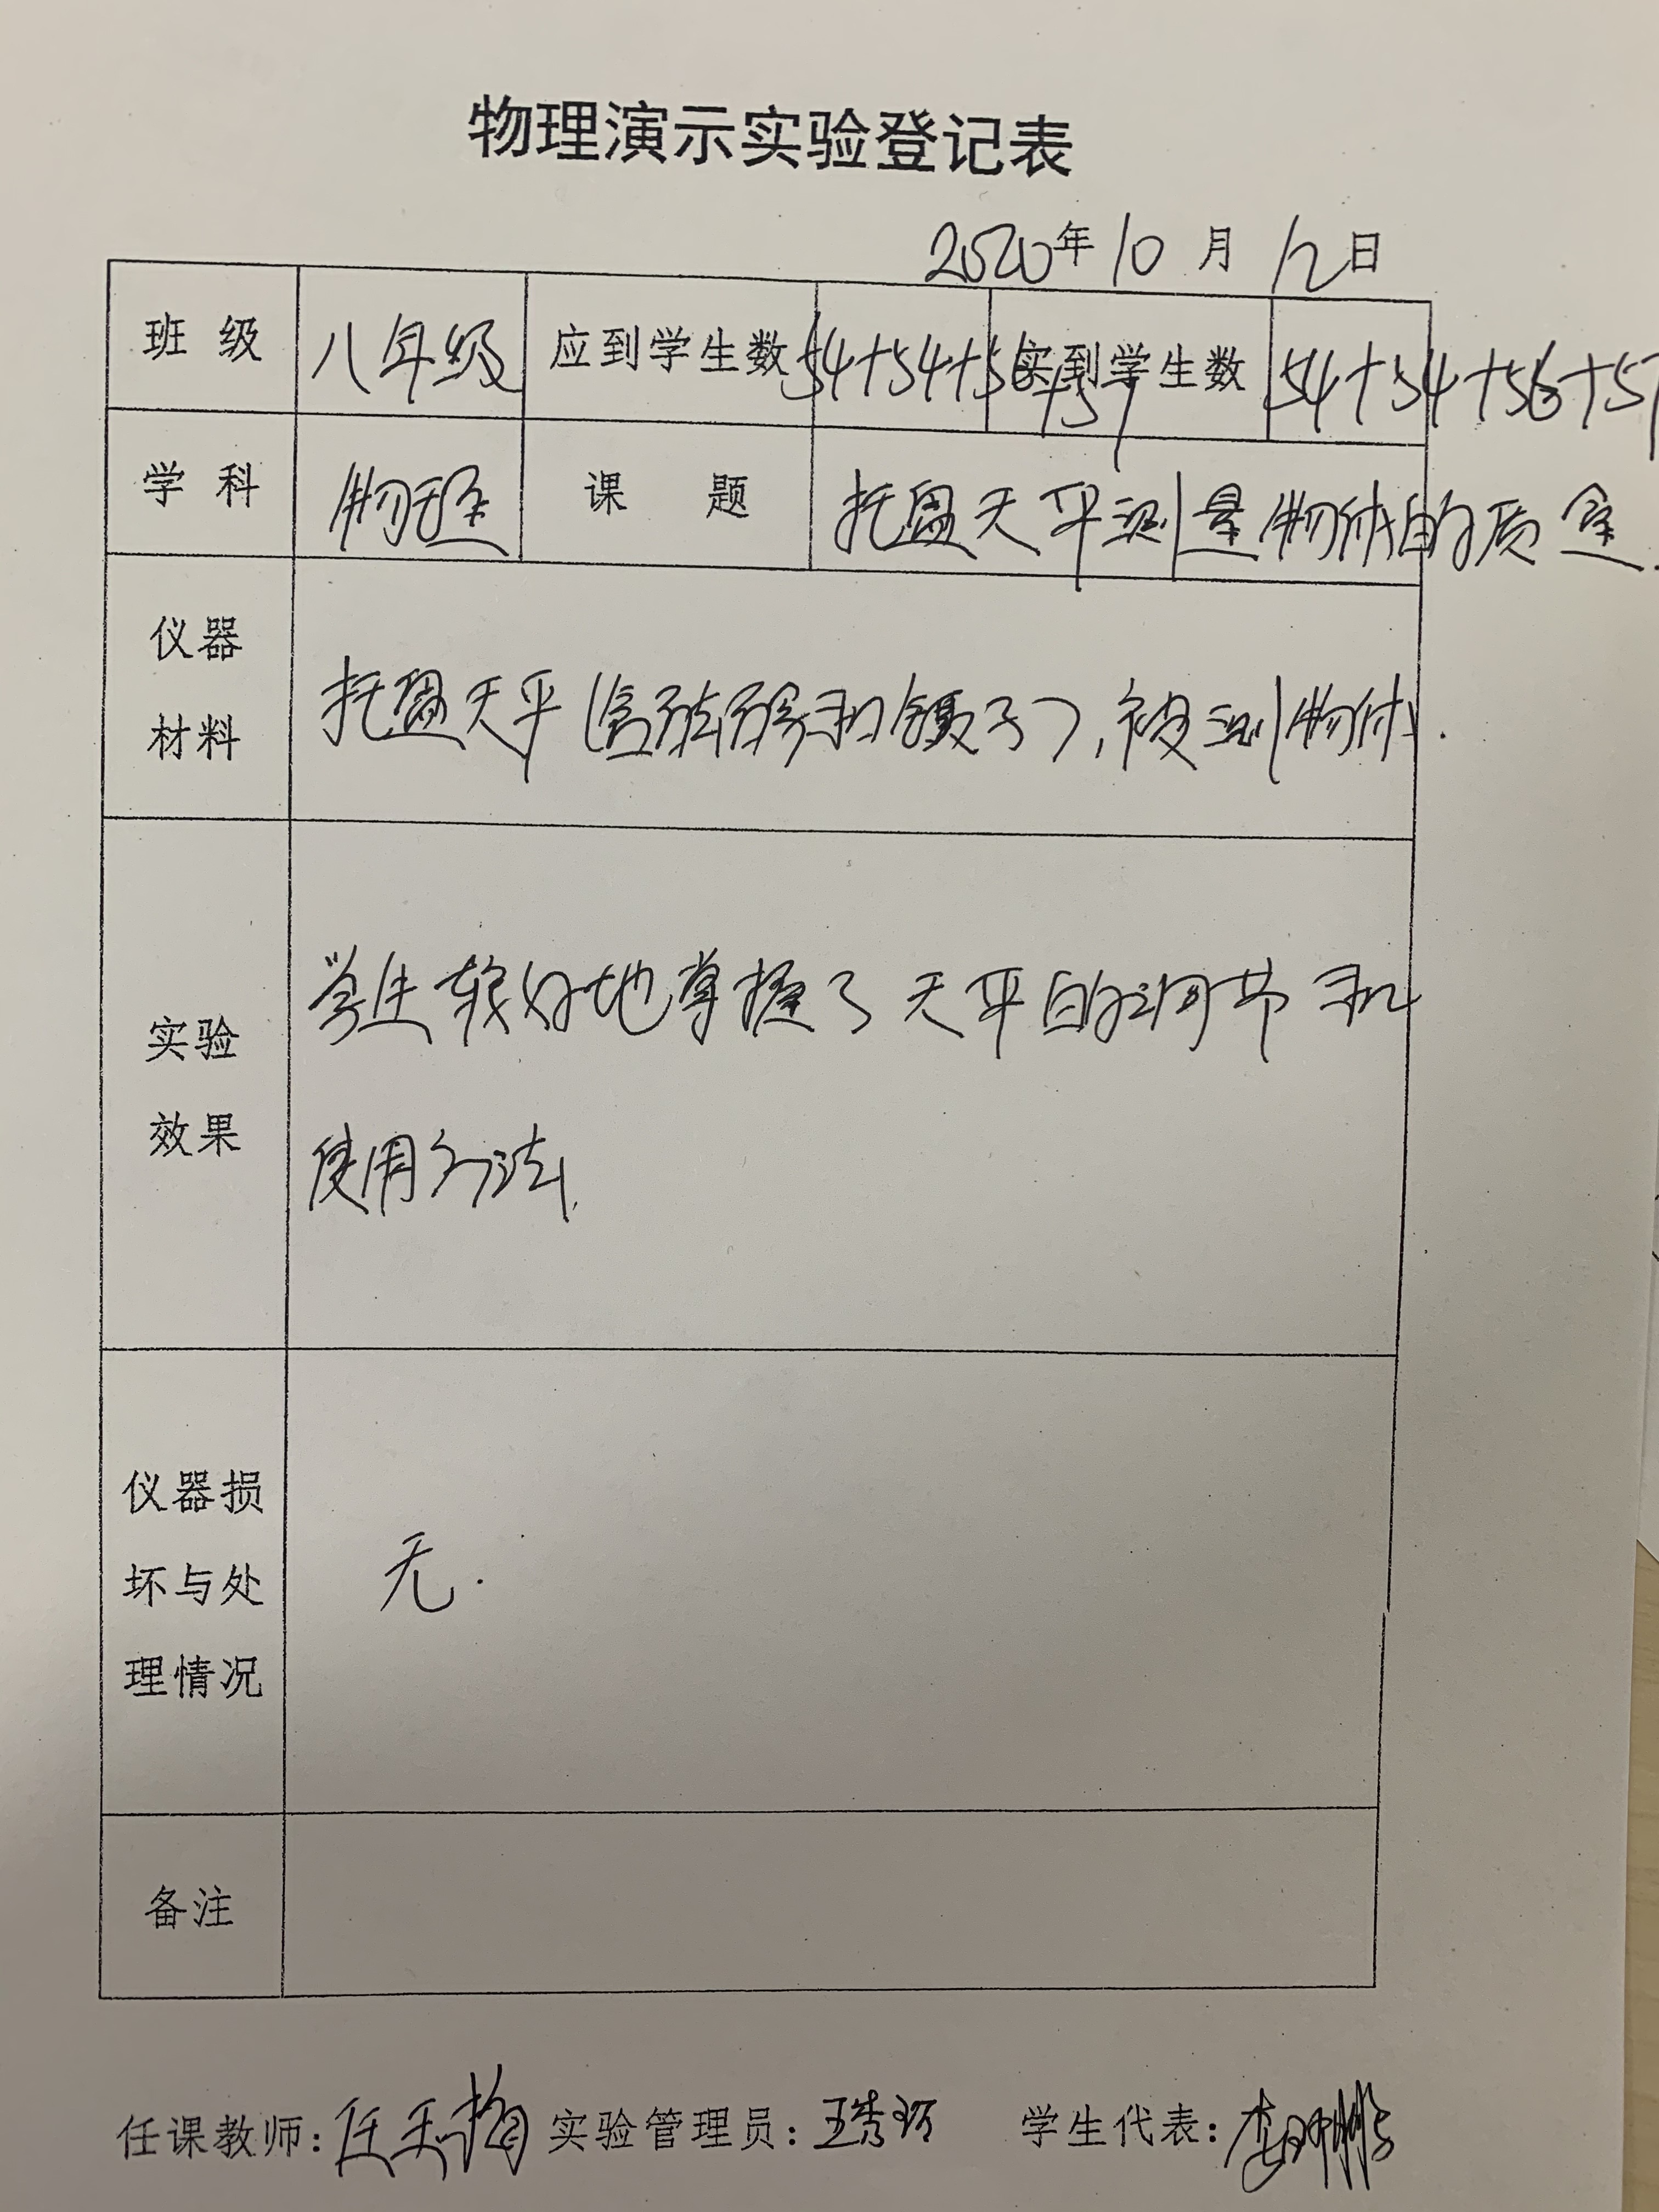 物理演示实验登记表
2020年10月12日
班 级 八年级 应到学生数 54+54+56+57 实到学生数 54+54+56+57
学 科 物理 课 题 托盘天平测量物体的质量.
仪器
材料
托盘天平(含砝码和镊子),被测物体.
实验
效果
学生较好地掌握了天平的调节和
使用方法.
仪器损
坏与处
理情况
无.
备注
任课教师: 实验管理员: 学生代表: